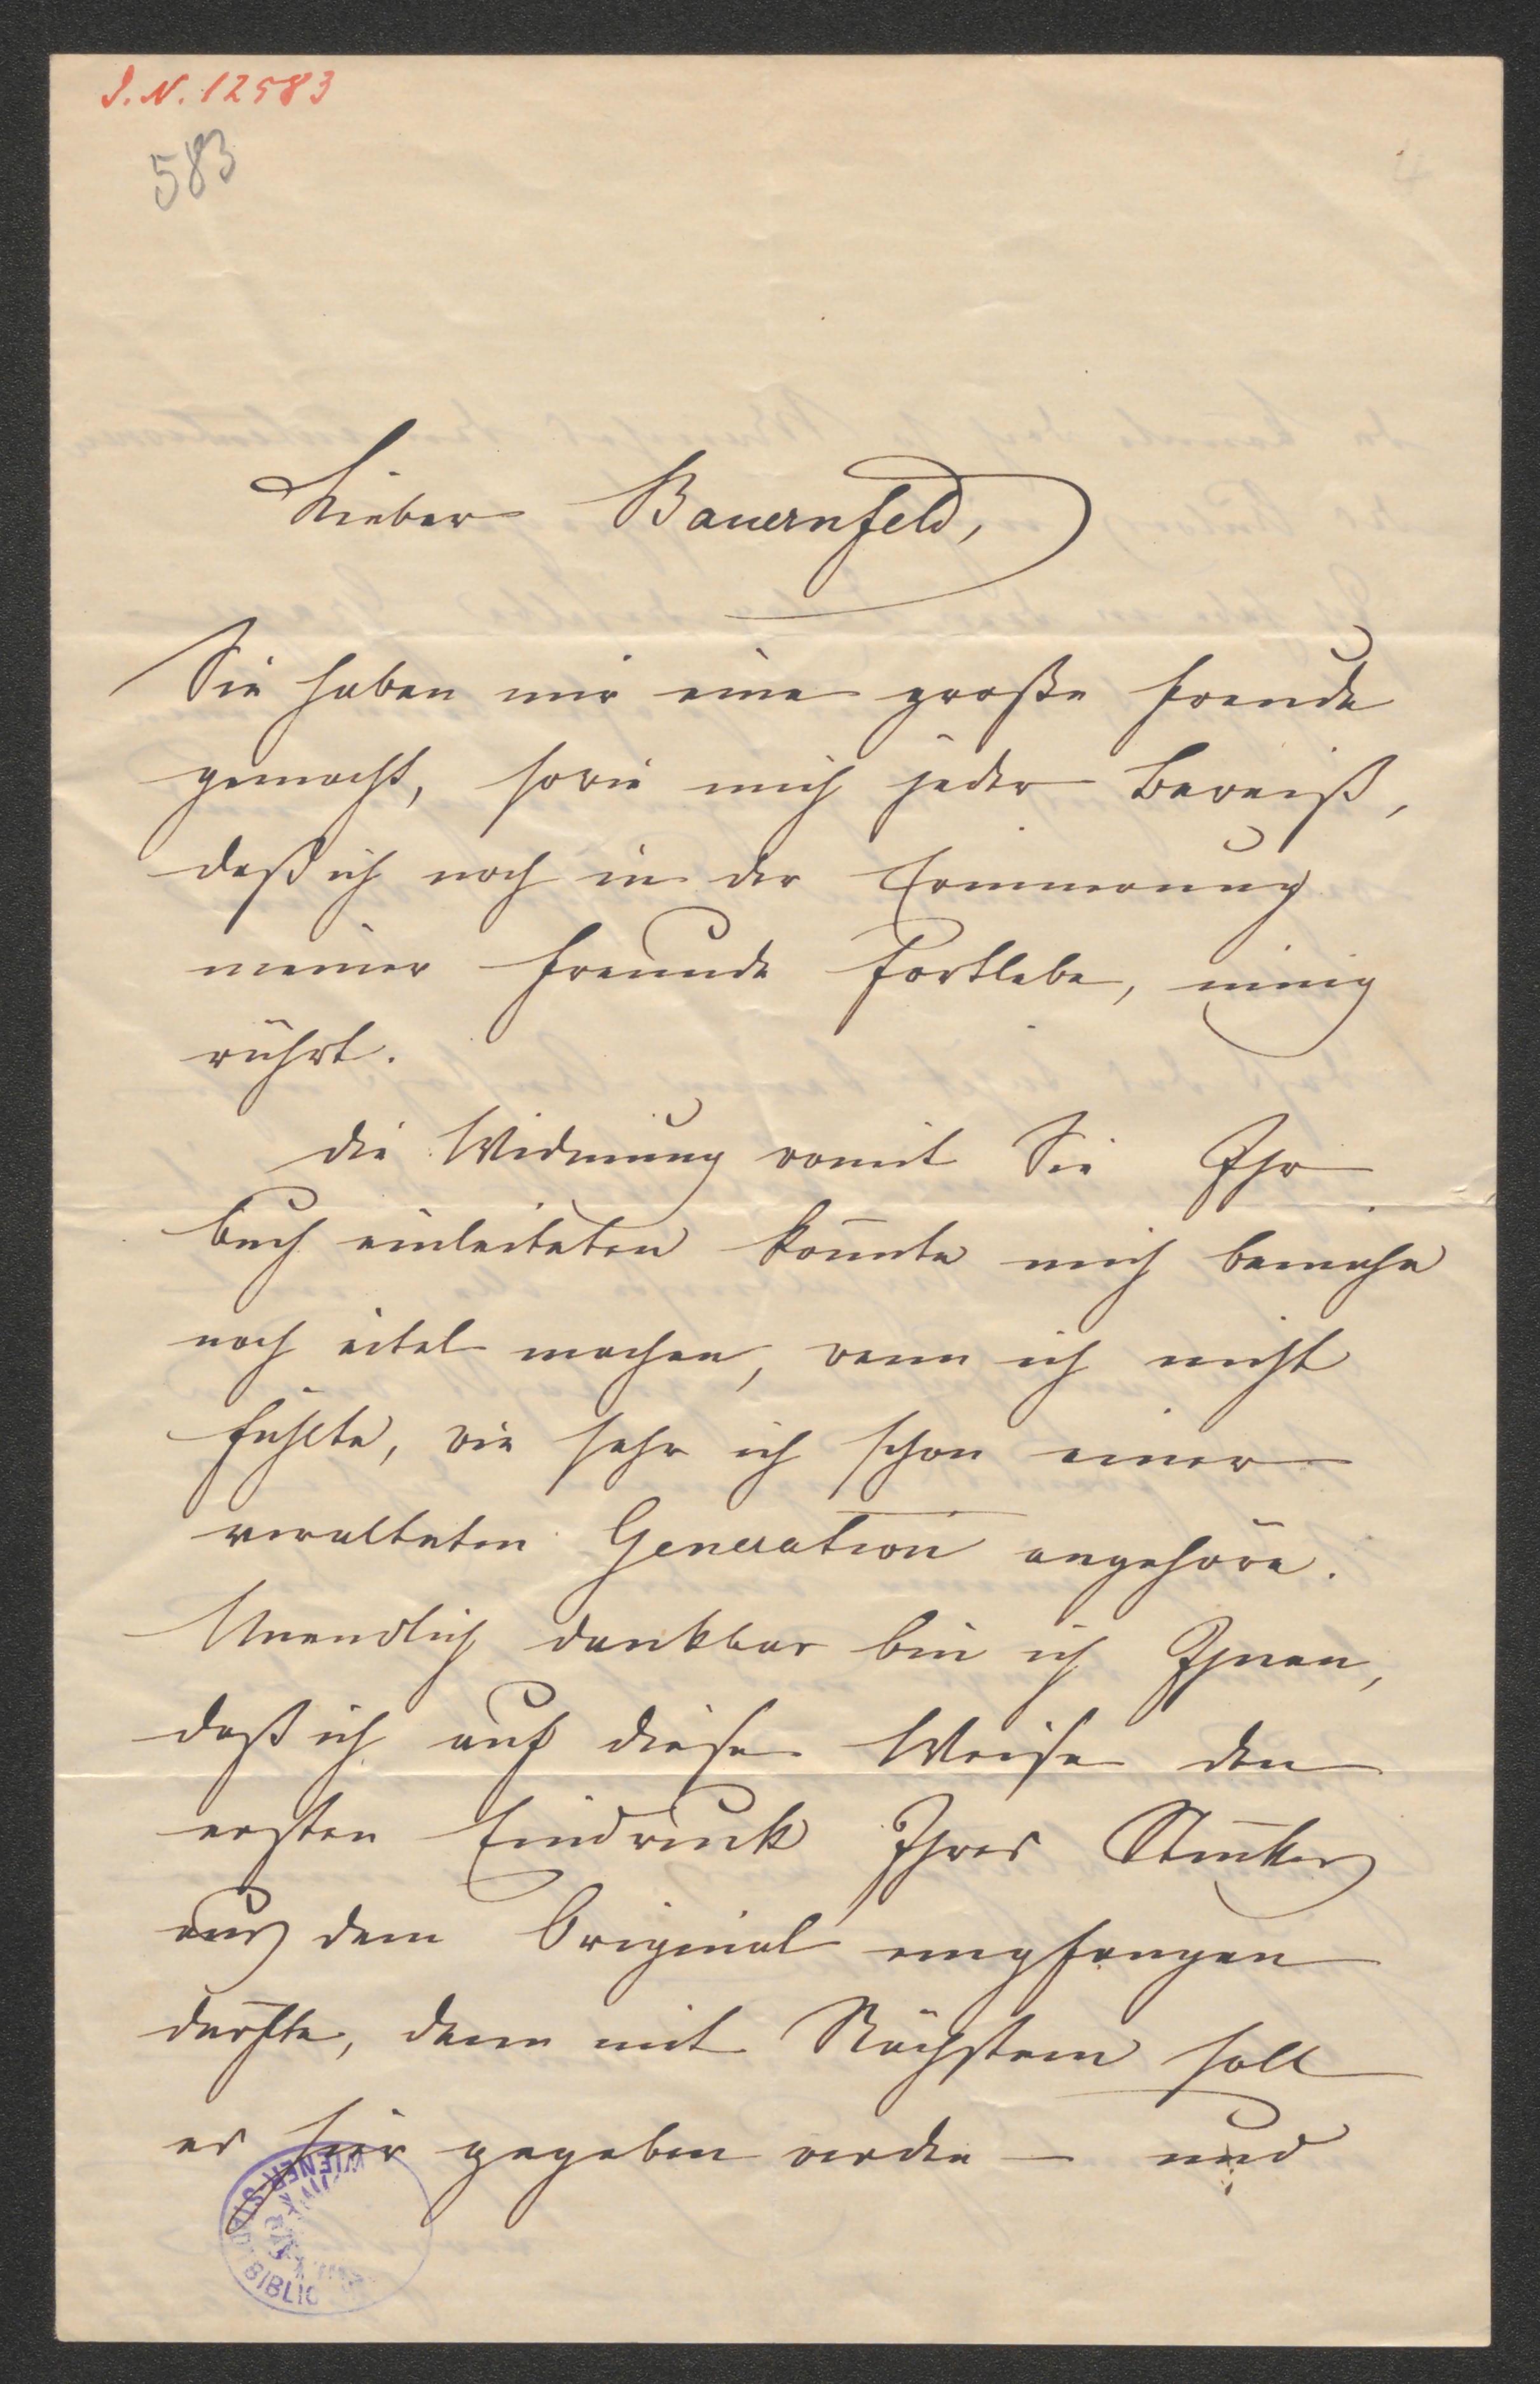 I.N. 12583
583
Lieber Bauernfeld,
Sie haben mir eine große Freude
gemacht, sowie mich jeder Beweiß,
daß ich noch in der Erinnerung
meiner Freunde fortlebe, innig
rührt.
Die Widmung womit Sie Ihr
Buch einleiteten könnte mich beinahe
noch eitel machen, wenn ich nicht
fühlte, wie sehr ich schon einer
veralteten Generation angehöre.
Unendlich dankbar bin ich Ihnen,
daß ich auf diese Weise den
ersten Eindruck Ihres Stückes
aus dem Original empfangen
durfte, denn mit Nächstem soll
es hier gegeben werden — und
WIENER STADT BIBLIO